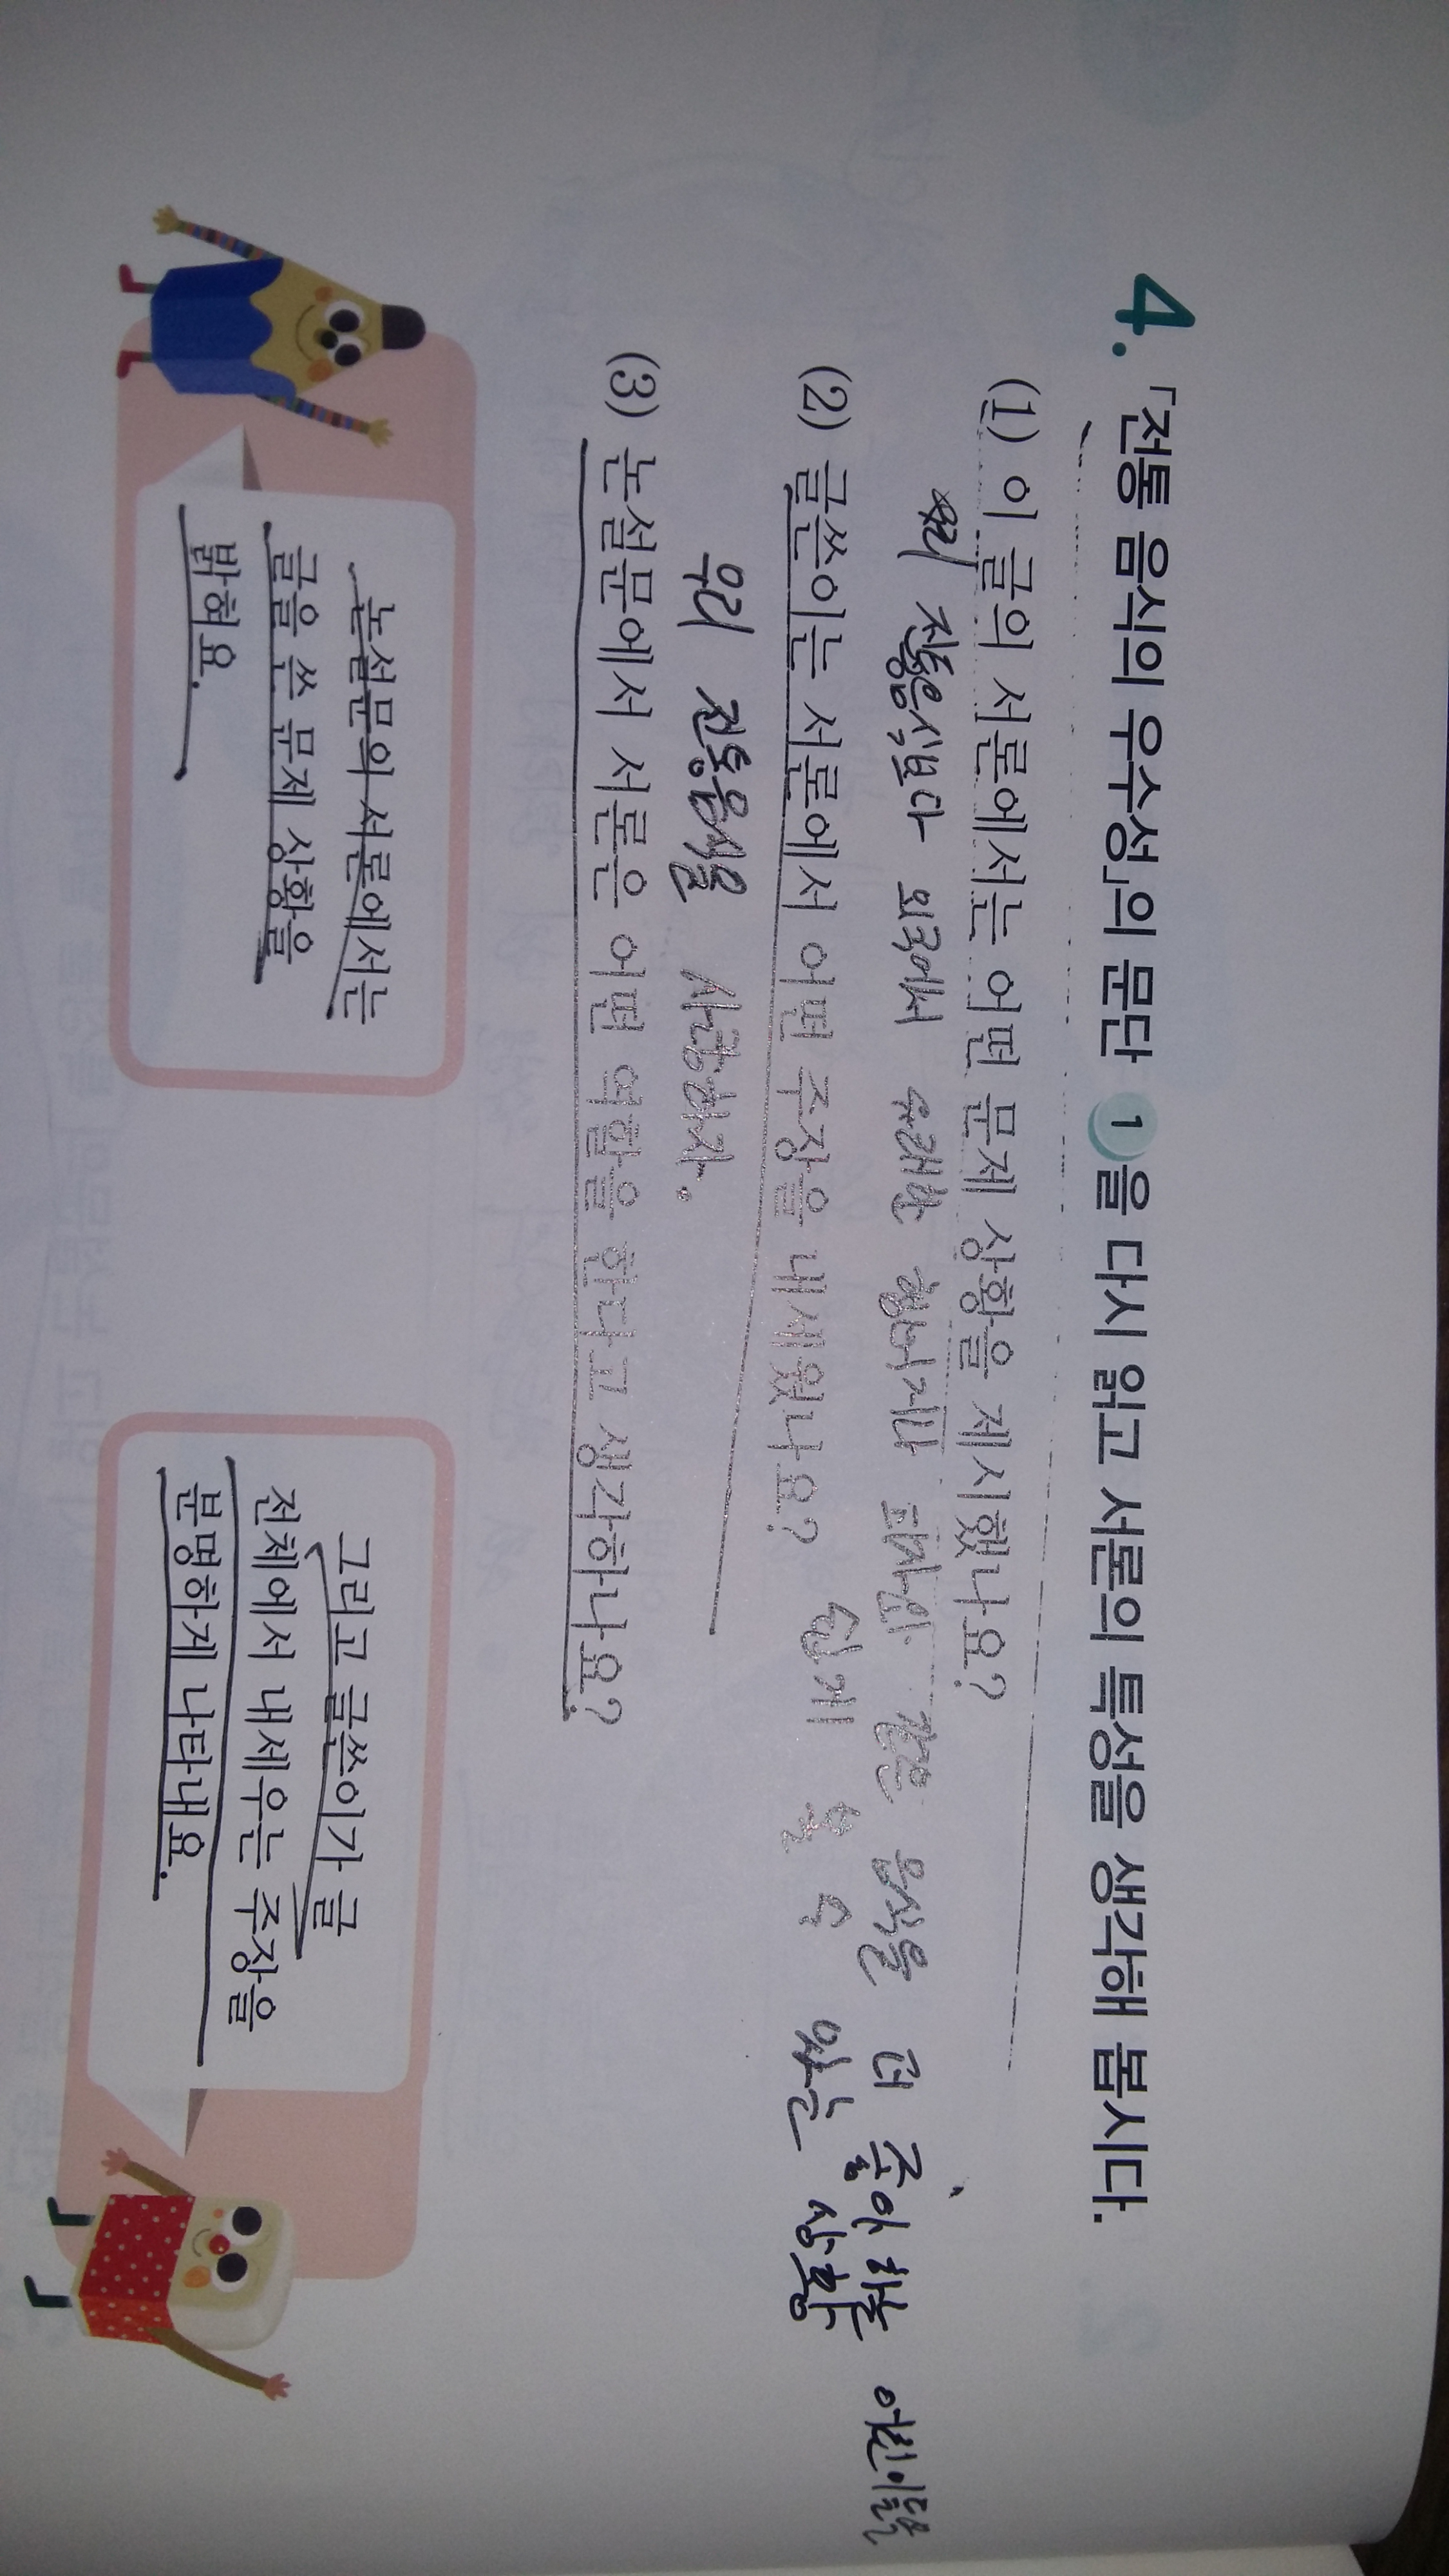 4. 「전통 음식의 우수성」의 문단 1을 다시 읽고 서론의 특성을 생각해 봅시다.
(1) 이 글의 서론에서는 어떤 문제 상황을 제시했나요?
우리 전통음식보다 외국에서 유래한 햄버거나 피자와 같은 음식을 더 좋아하는 어린이들을
쉽게 볼 수 있는 상황
(2) 글쓴이는 서론에서 어떤 주장을 내세웠나요?
우리 전통음식을 사랑하자.
(3) 논설문에서 서론은 어떤 역할을 한다고 생각하나요?
논설문의 서론에서는
글을 쓴 문제 상황을
밝혀요.
그리고 글쓴이가 글
전체에서 내세우는 주장을
분명하게 나타내요.